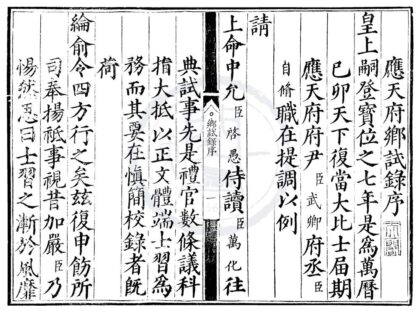 應天府鄉試錄序
皇上嗣登寶位之七年是爲萬曆
己卯天下復當大比士屆期
應天府府尹臣武卿府丞臣
自脩職在提調以例
請
上命中允臣啓愚侍讀臣萬化往
鄉試錄序 一
典試事先是禮官數條議科
指大抵以正文體端士習爲
務而其要在慎簡校錄者既
荷
綸俞令四方行之矣茲復申飭所
司奉揚祗事視昔加嚴臣乃
惕然思曰士習之漸於風靡